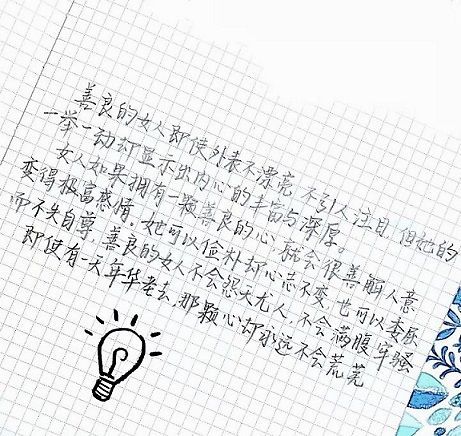 善良的女人即使外表不漂亮,不引人注目,但她的
一举一动却显示出内心的丰富与深厚。
女人如果拥有一颗善良的心,就会很善解人意
变得极富感情,她可以俭朴却心志不变,也可以委屈
而不失自尊,善良的女人不会怨天尤人,不会满腹牢骚
即使有一天年华老去,那颗心却永远不会荒芜